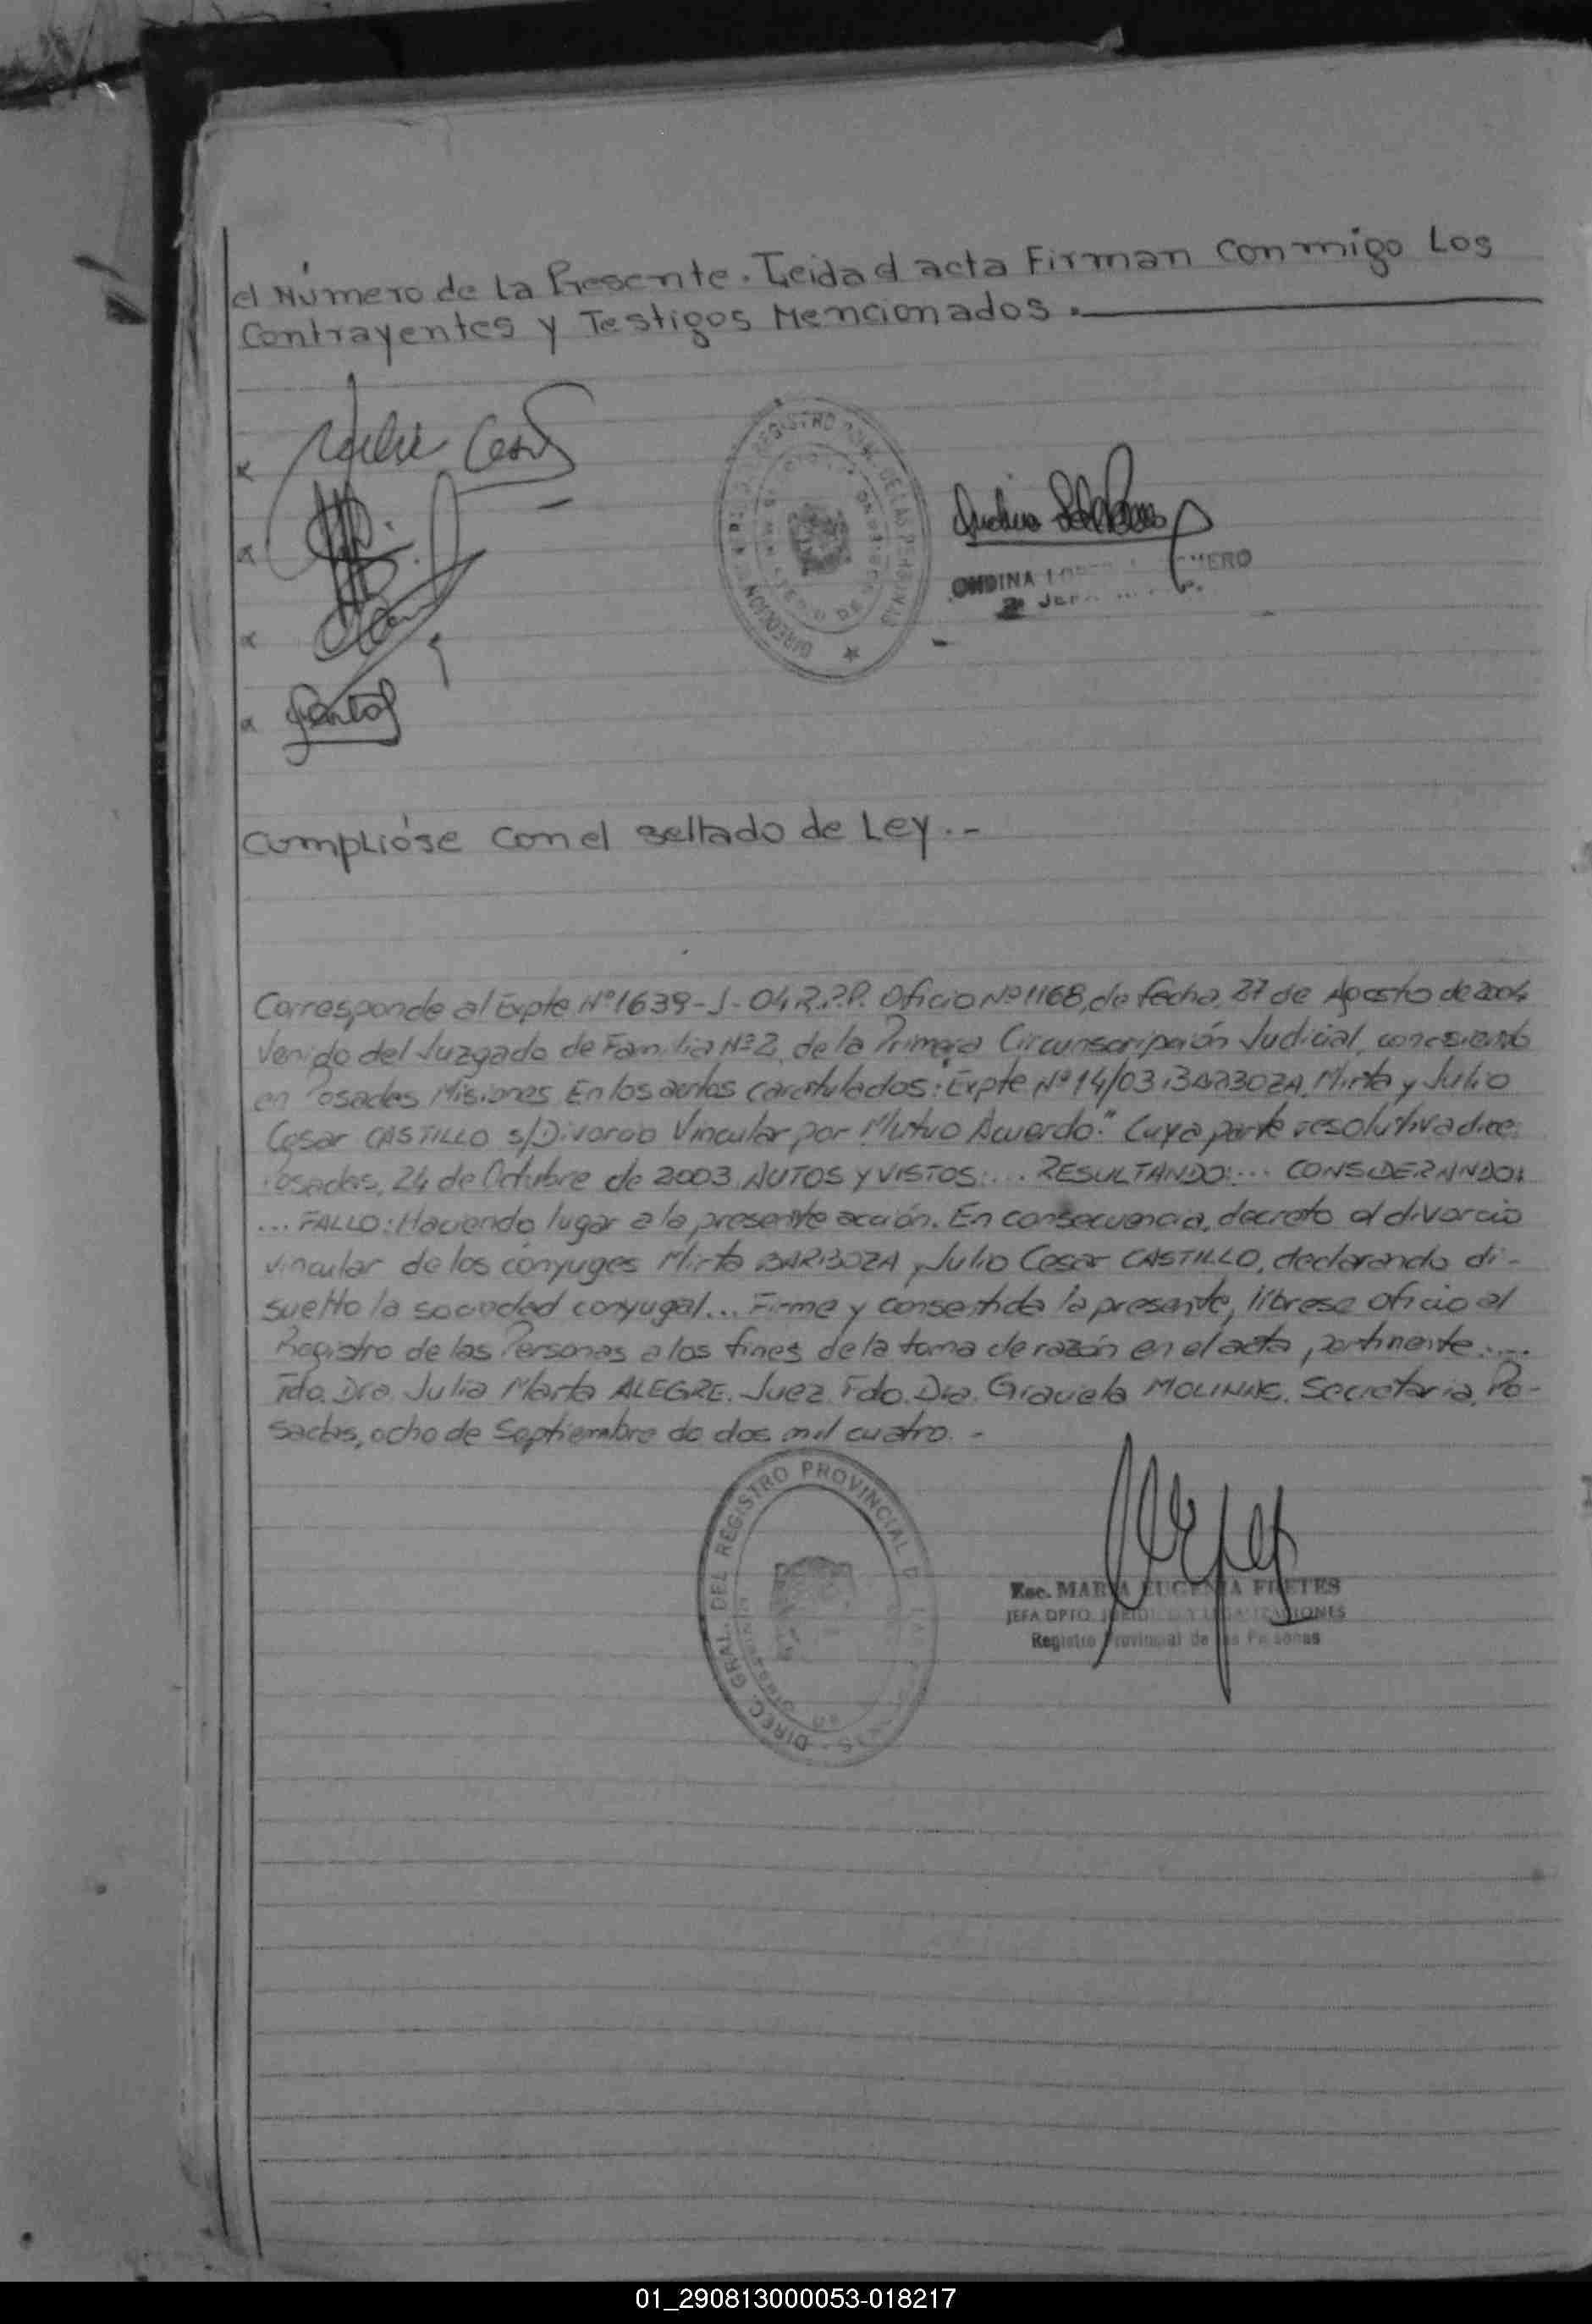 el Número de la Presente. Leida el acta Firman Conmigo Los
Contrayentes y Testigos Mencionados.
Julio Cesar
DIRECCION REGISTRO DE LAS PERSONAS
ONDINA
2º
Cumplióse con el sellado de Ley.-
Corresponde al Expte Nº1639-J-04 R.P.P. Oficio Nº1168, de fecha, 27 de Agosto de 2004
Venido del Juzgado de Familia Nº2, de la Primera Circunscripción Judicial,
en Posadas Misiones. En los autos caratulados: Expte Nº14/03 BARBOZA, Mirta y Julio
Cesar CASTILLO s/Divorcio Vincular por Mutuo Acuerdo." Cuya parte resolutiva dice:
Posadas, 24 de Octubre de 2003. AUTOS Y VISTOS:... RESULTANDO:... CONSIDERANDO:
... FALLO: Haciendo lugar a la presente acción. En consecuencia, decreto el divorcio
vincular de los cónyuges Mirta BARBOZA y Julio Cesar CASTILLO, declarando di-
suelto la sociedad conyugal... Firme y consentida la presente, líbrese oficio al
Registro de las Personas a los fines de la toma de razón en el acta pertinente....
Fdo. Dra. Julia Marta ALEGRE. Juez. Fdo. Dra. Graciela Secretaria. Po-
sadas, ocho de Septiembre de dos mil cuatro.-
DIREC. GRAL. DEL REGISTRO PROVINCIAL DE LAS
Esc. MARIA EUGENIA FRETES
JEFA DPTO. JURIDICO Y LEGALIZACIONES
Registro Provincial de las Personas
01_290813000053-018217